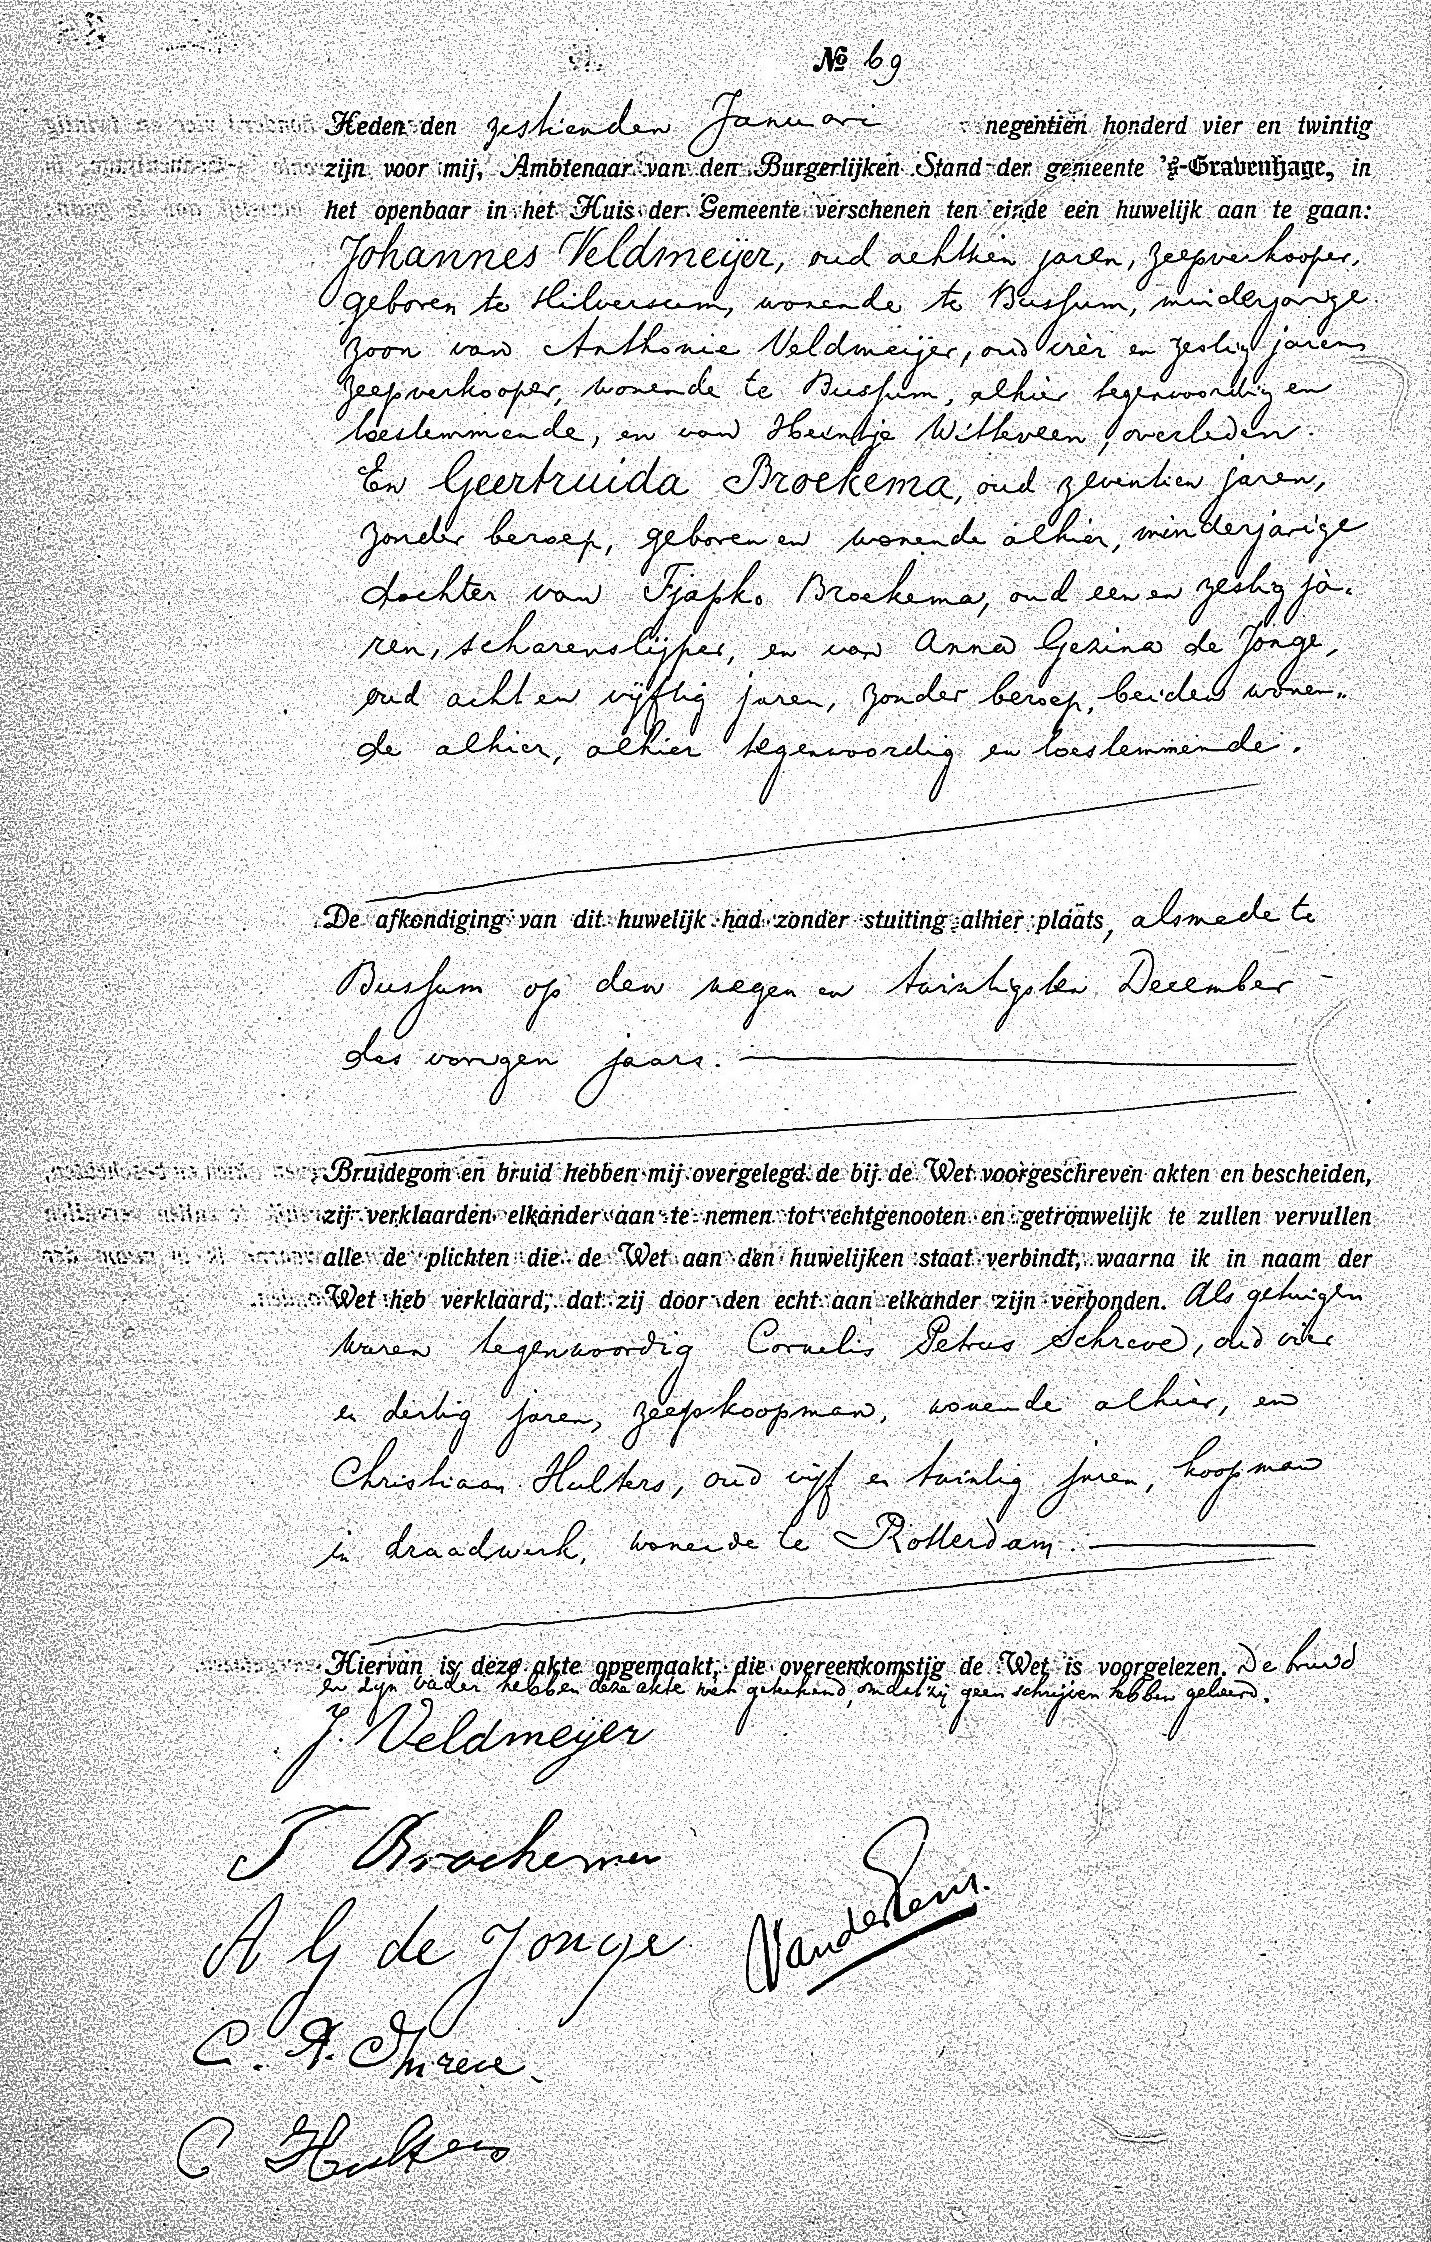 № 69
Heden den zestienden Januari negentien honderd vier en twintig
zijn voor mij, Ambtenaar van den Burgerlijken Stand der gemeente 's-Gravenhage, in
het openbaar in het Huis der Gemeente verschenen ten einde een huwelijk aan te gaan:
Johannes Veldmeijer, oud achttien jaren, zeepverkooper,
geboren te Hilversum, wonende te Bussum, minderjarige
zoon van Anthonie Veldmeijer, oud vier en zestig jaren,
zeepverkooper, wonende te Bussum, alhier tegenwoordig en
toestemmende, en van Heintje Witteveen, overleden.
En Geertruida Broekema, oud zeventien jaren,
zonder beroep, geboren en wonende alhier, minderjarige
dochter van Tjapko Broekema, oud een en zestig ja-
ren, scharenslijper, en van Anna Gezina de Jonge,
oud acht en vijftig jaren, zonder beroep, beiden wonen-
de alhier, alhier tegenwoordig en toestemmende.
De afkondiging van dit huwelijk had zonder stuiting alhier plaats, alsmede te
Bussum op den negen en twintigsten December
des vorigen jaars.
Bruidegom en bruid hebben mij overgelegd de bij de Wet voorgeschreven akten en bescheiden,
zij verklaarden elkander aan te nemen tot echtgenooten en getrouwelijk te zullen vervullen
alle de plichten die de Wet aan den huwelijken staat verbindt, waarna ik in naam der
Wet heb verklaard, dat zij door den echt aan elkander zijn verbonden. Als getuigen
waren tegenwoordig Cornelis Petrus Schreve, oud vier
en dertig jaren, zeepkoopman, wonende alhier, en
Christiaan Hulkers, oud vijf en twintig jaren, koopman
in draadwerk, wonende te Rotterdam.
Hiervan is deze akte opgemaakt, die overeenkomstig de Wet is voorgelezen. De bruid
en zijn vader hebben deze akte niet geteekend, omdat zij geen schrijven hebben geleerd.
J. Veldmeijer
T Broekema
A G de Jonge
C. P. Schreve
C Hulkers